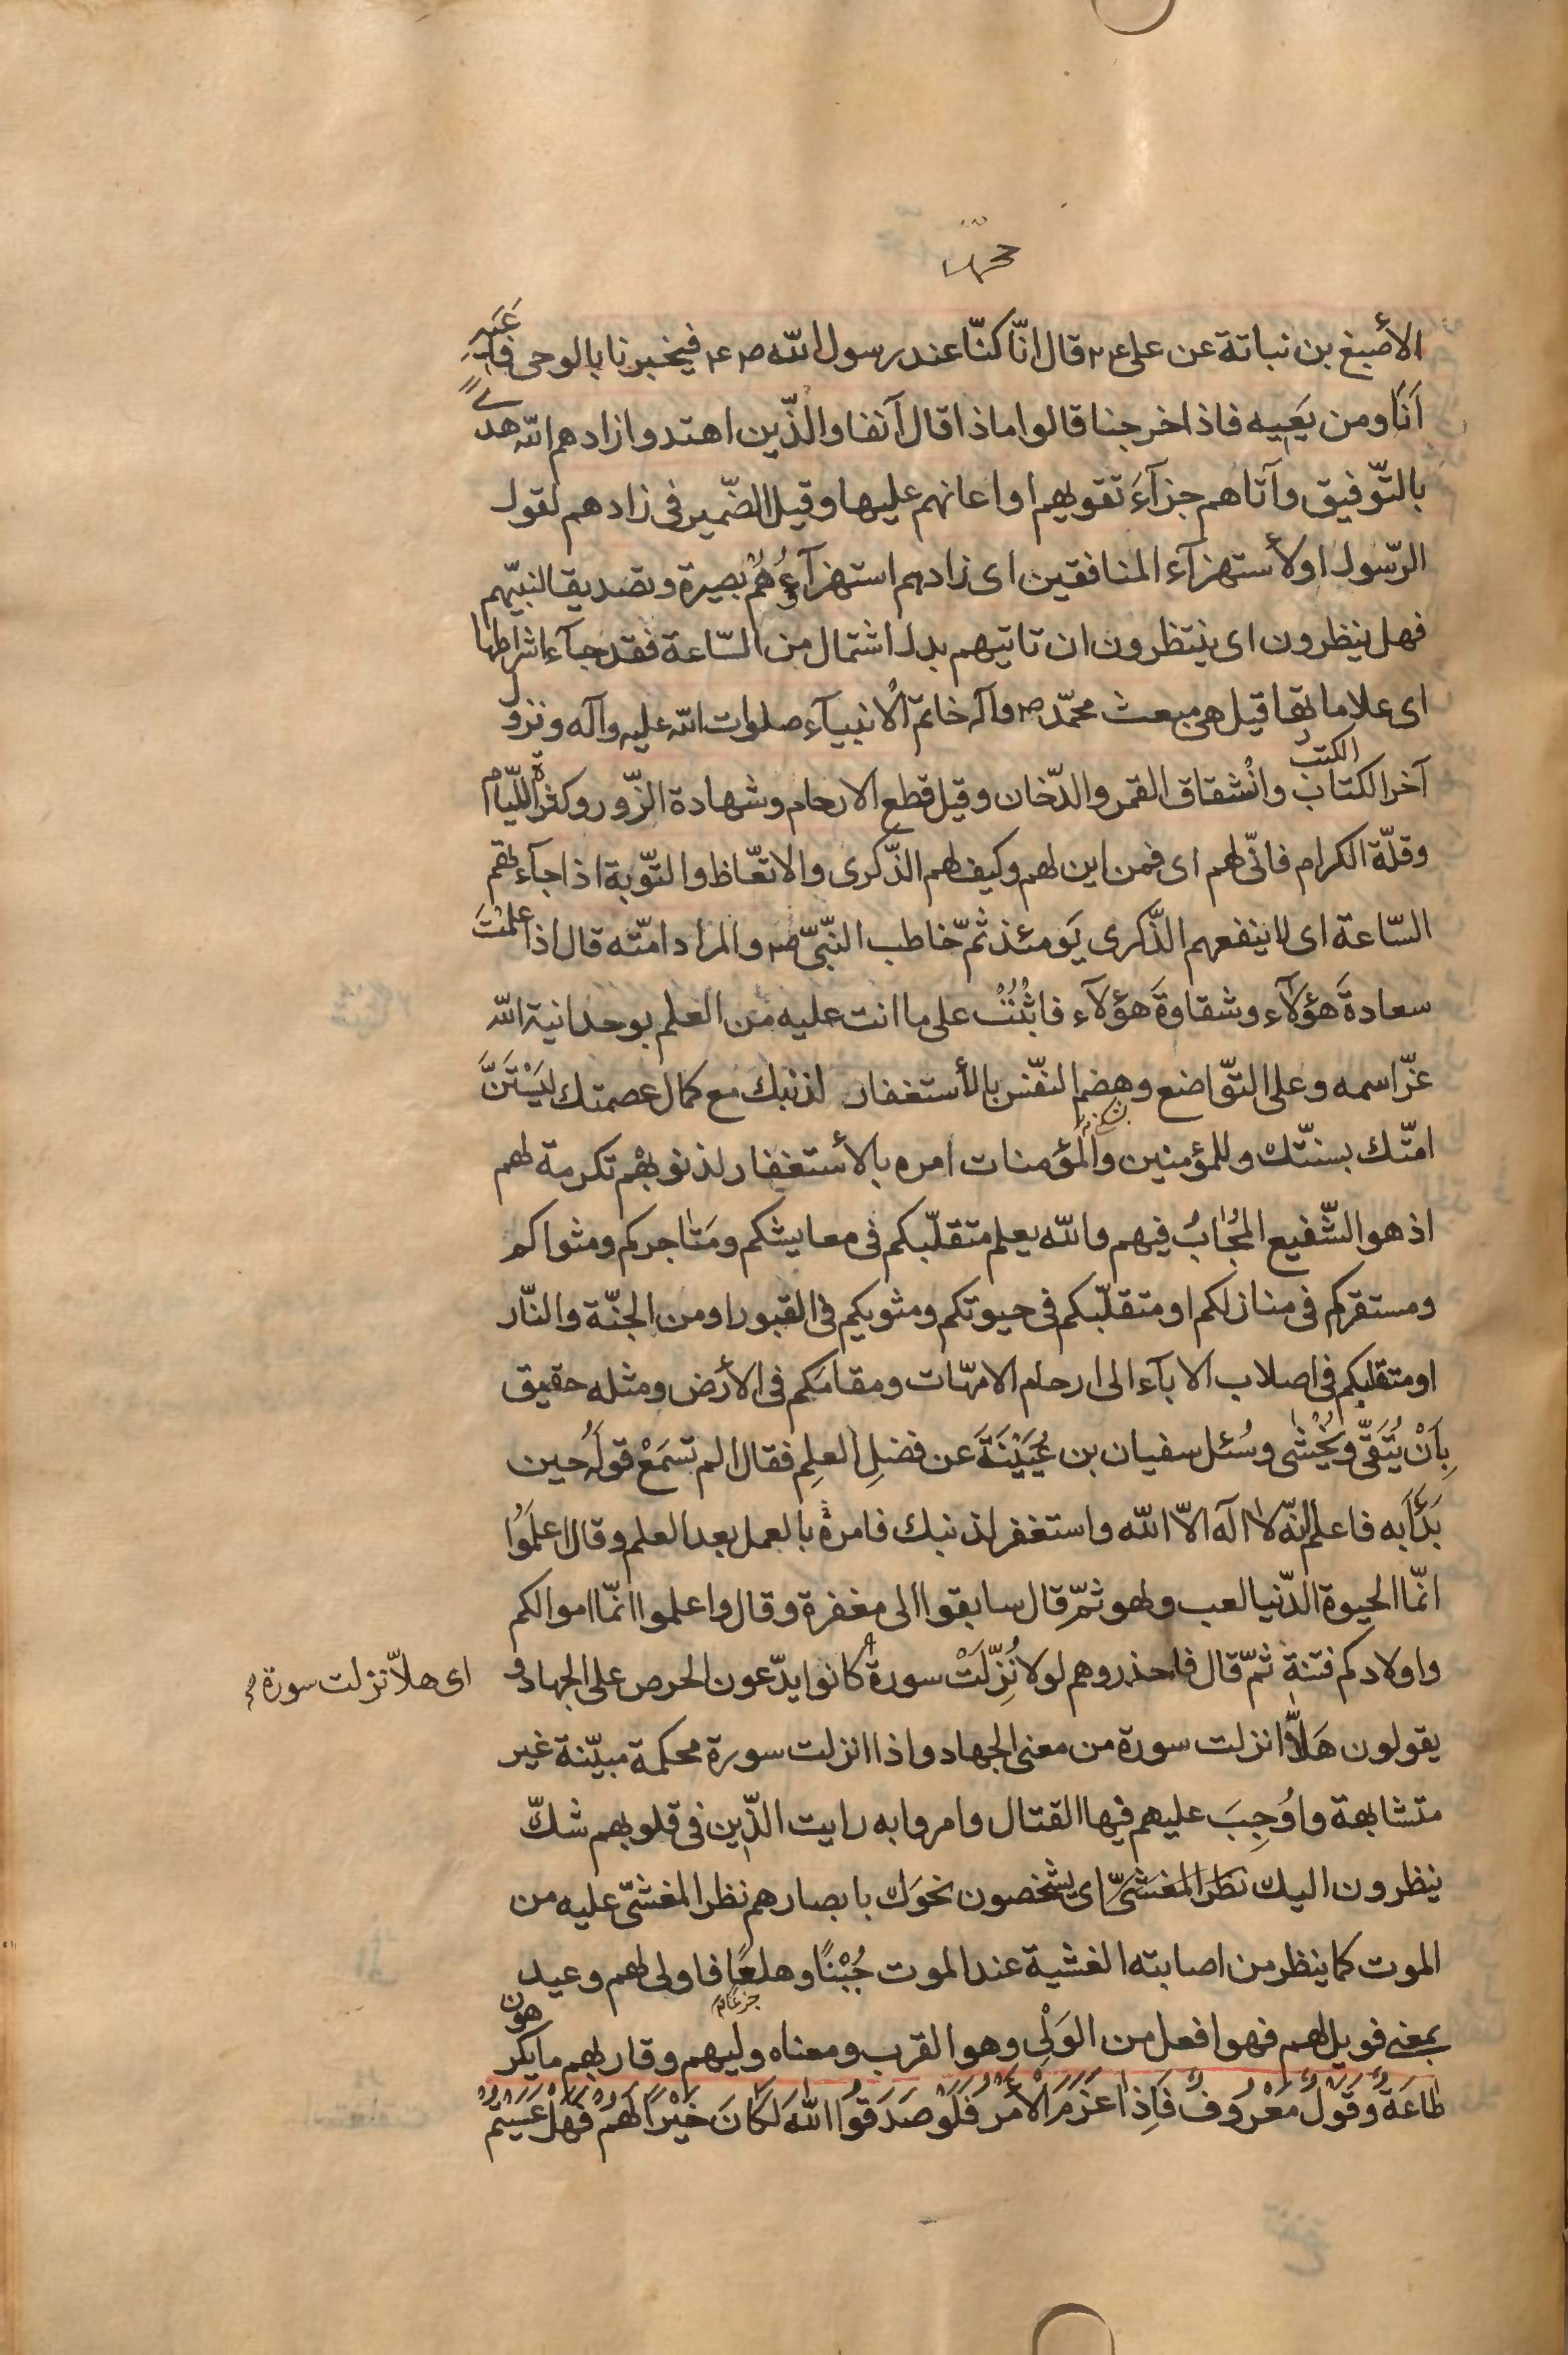 الأصبغ بن نباتة عن علی ع م قال انّا كنّا عند رسول الله ص ع فيخبرنا بالوحی فأعيه
اَنَا ومن يَعيه فاذا خرجنا قالوا ماذا قال آنفا والذّين اهتدوا زادهم الله هدیً
بالتّوفيق وآتاهم جزآءَ تقويهم او اعانهم عليها وقيل الضّمير فی زادهم لقول
الرّسول او لأستهزآء المنافقين ای زادهم استهزآؤُهُمْ بصيرة وتصديقا لنبيّهم
فهل ينظرون ای ينتظرون ان تاتيهم بدل اشتمال من السّاعة فقد جآء اشراطها
ای علاماتها قيل هی مبعث محمّد ص وآله خاتم الأنبيآء صلوات الله عليه وآله ونزول
الكتب
آخر الكتاب وانْشقاق القمر والدّخان وقيل قطع الارحام وشهادة الزّور وكثرة اللّيام
وقلّة الكرام فانّی لهم ای فمن اين لهم وكيف لهم الذّكری والاتعّاظ والتّوبة اذا جآءتهم
السّاعة ای لا ينفعهم الذّكری يَومئذ ثمّ خاطب النّبیّ ص والمراد امّته قال اذا علمْتَ
سعادةَ هؤلآء وشقاوةَ هؤلآء فاثْبُتْ علی ما انت عليه من العلم بوحدانية الله
عزّ اسمه وعلی التوّاضع وهضم النفّس بالأستغفار لذنبك مع كمال عصمتك ليَسْتَنَّ
امّتك بسنّتك وللمؤمنين والمؤمنات امره بالأستغفار لذنوبهْم تكرمة لهم
اذ هو الشّفيع المجُابُ فيهم والله يعلم متقلّبكم فی معايشكم ومَتاجركم ومثواكم
ومستقركم فی منازلكم او متقلّبكم فی حيوتكم ومثويكم فی القبور او من الجنّة والنّار
او متقلبكم فی اصلاب الابآء الی ارحام الامّهات ومقامكم فی الأرض ومثله حقيق
بِاَنْ يُتَقّی ويُخْشٰی وسُئل سفيان بن عُيَيْنَةَ عن فضلِ العلِم فقال الم تسمَعْ قولَهُ حين
بَدَأَ به فاعلم انّه لا آله الاّ الله واستغفر لذنبك فامره بالعمل بعد العلم وقال اعلَموُا
انّما الحيوة الدّنيا لعب ولهو ثمّ قال سابقوا الی مغفرة وقال واعلموا انّما اموالكم
واولادكم فتنة ثمّ قال فاحذروهم لولا نُزِّلَتْ سورة كانوا يدّعون الحرص علی الجهاد و
ای هلاّ نزلت سورة
يقولون هَلاّ انزلت سورة من معنی الجهاد واذا انزلت سورة محكمة مبيّنة غير
متشابهة واُوجِبَ عليهم فيها القتال وامروا به رايت الذّين فی قلوبهم شكّ
ينظرون اليك نظر المغشیّ ای يشخصون نحوك بابصارهم نظر المغشیّ عليه من
الموت كما ينظر من اصابته الغشية عند الموت جُبْنًا وهلعًا فاولی لهم وعيد
جزعا
بمعنی فويل لهم فهو افعل من الوَلْیِ وهو القرب ومعناه وليهم وقاربهم ما يكرهون
طاعَةٌ وَقَوْلٌ مَعْرُوفٌ فَاِذا عَزَمَ الْاَمْرُ فَلَوْ صَدَقُوا اللهَ لَكانَ خَيْرًا لَهُمْ فَهَلْ عَسَيْتُمْ